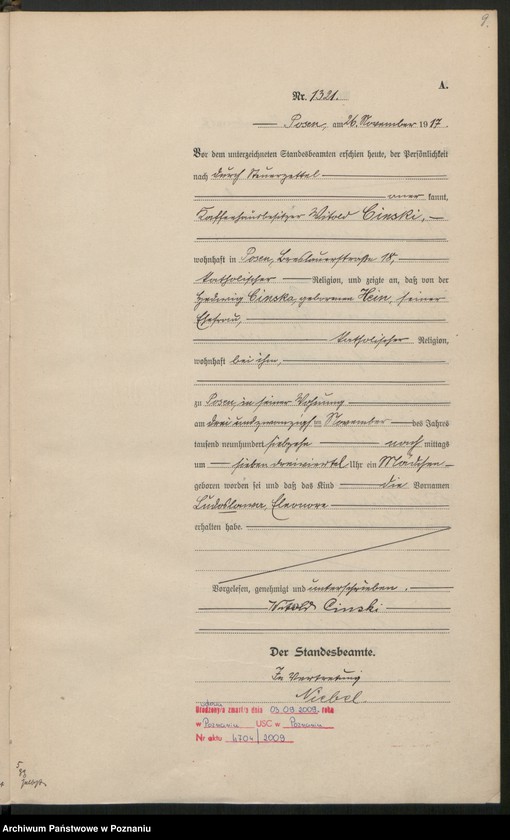 9.
A.
Nr. 1321.
Posen, am 26. November 1917.
Vor dem unterzeichneten Standesbeamten erschien heute, der Persönlichkeit
nach durch Steuerzettel
aner kannt,
Kaffeehausbesitzer Witold Cinski,
wohnhaft in Posen, Breslauerstraße 18,
katholischer Religion, und zeigte an, daß von der
Hedwig Cinska, geborenen Hein, seiner
Ehefrau,
katholischer Religion,
wohnhaft bei ihm,
zu Posen, in seiner Wohnung
am drei und zwanzigsten November des Jahres
tausend neunhundert siebzehn nach mittags
um sieben dreiviertel Uhr ein Mädchen
geboren worden sei und daß das Kind die Vornamen
Ludoslawa, Eleonore
erhalten habe.
Vorgelesen, genehmigt und unterschrieben.
Witold Cinski
Der Standesbeamte.
In Vertretung
Niebel.
zmarł a dnia 03 09 2009. roku
w Poznaniu USC w Poznaniu
Nr aktu 4704/2009
Archiwum Państwowe w Poznaniu